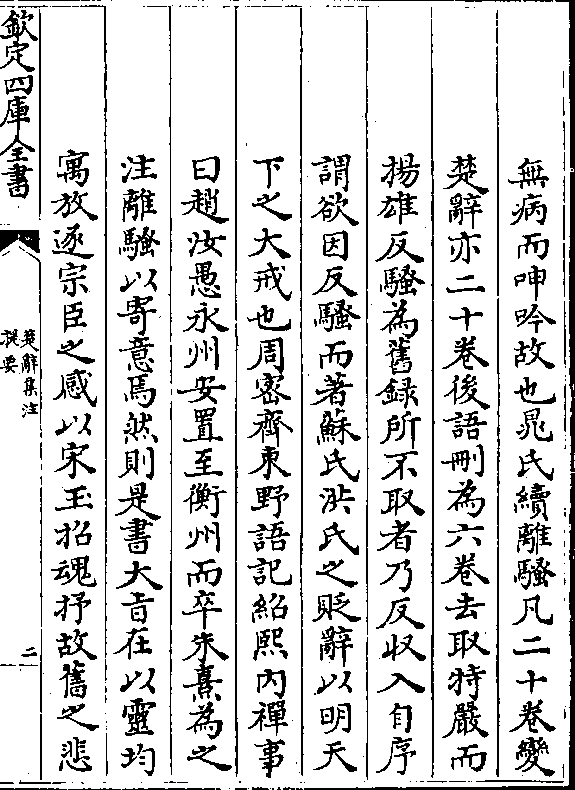 無病而呻吟故也晁氏續離騷凡二十卷變
楚辭亦二十卷後語刪為六卷去取特嚴而
揚雄反騷為舊録所不取者乃反収入自序
謂欲因反騷而著蘇氏洪氏之貶辭以明天
下之大戒也周密齊東野語記紹熙内禪事
曰趙汝愚永州安置至衡州而卒朱熹為之
注離騷以寄意焉然則是書大旨在以靈均
寓放逐宗臣之感以宋玉招魂抒故舊之悲
欽定四庫全書
楚辭集注
提要
二